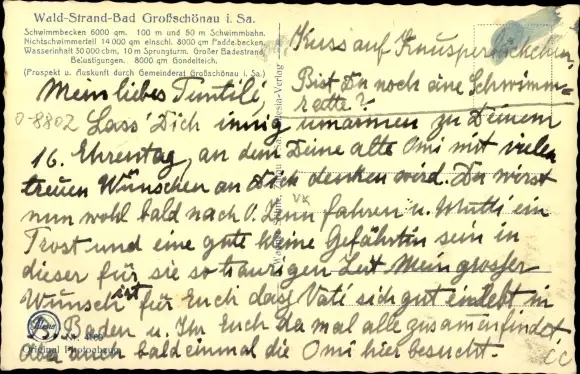 Wald-Strand-Bad Großschönau i. Sa.
Schwimmbecken 6000 qm. 100 m und 50 m Schwimmbahn.
Nichtschwimmerteil 14000 qm einschl. 8000 qm Paddelbecken.
Wasserinhalt 30000 cbm, 10 m Sprungturm. Großer Badestrand.
Belustigungen. 8000 qm Gondelteich.
(Prospekt u. Auskunft durch Gemeinderat Großschönau i. Sa.)
Kuss auf
Bist Du noch eine Schwimm-
ratte?
Mein liebes
O-8802
Lass' Dich innig umarmen zu Deinem
16. Ehrentag, an dem Deine alte Omi mit vielen
treuen Wünschen an Dich denken wird. Du wirst
nun wohl bald nach fahren u. Mutti ein
VK
Trost und eine gute kleine Gefährtin sein in
dieser für sie so traurigen Zeit. Mein grosser
Wunsch ist für Euch dass Vati sich gut einlebt in
Baden u. Ihr Euch da mal alle zusammenfindet,
Aber auch bald einmal die Omi hier besucht.
Original Photochemie
CC